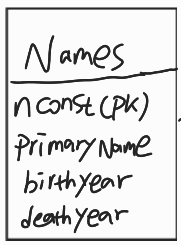 Names
nconst (PK)
PrimaryName
birthyear
deathyear